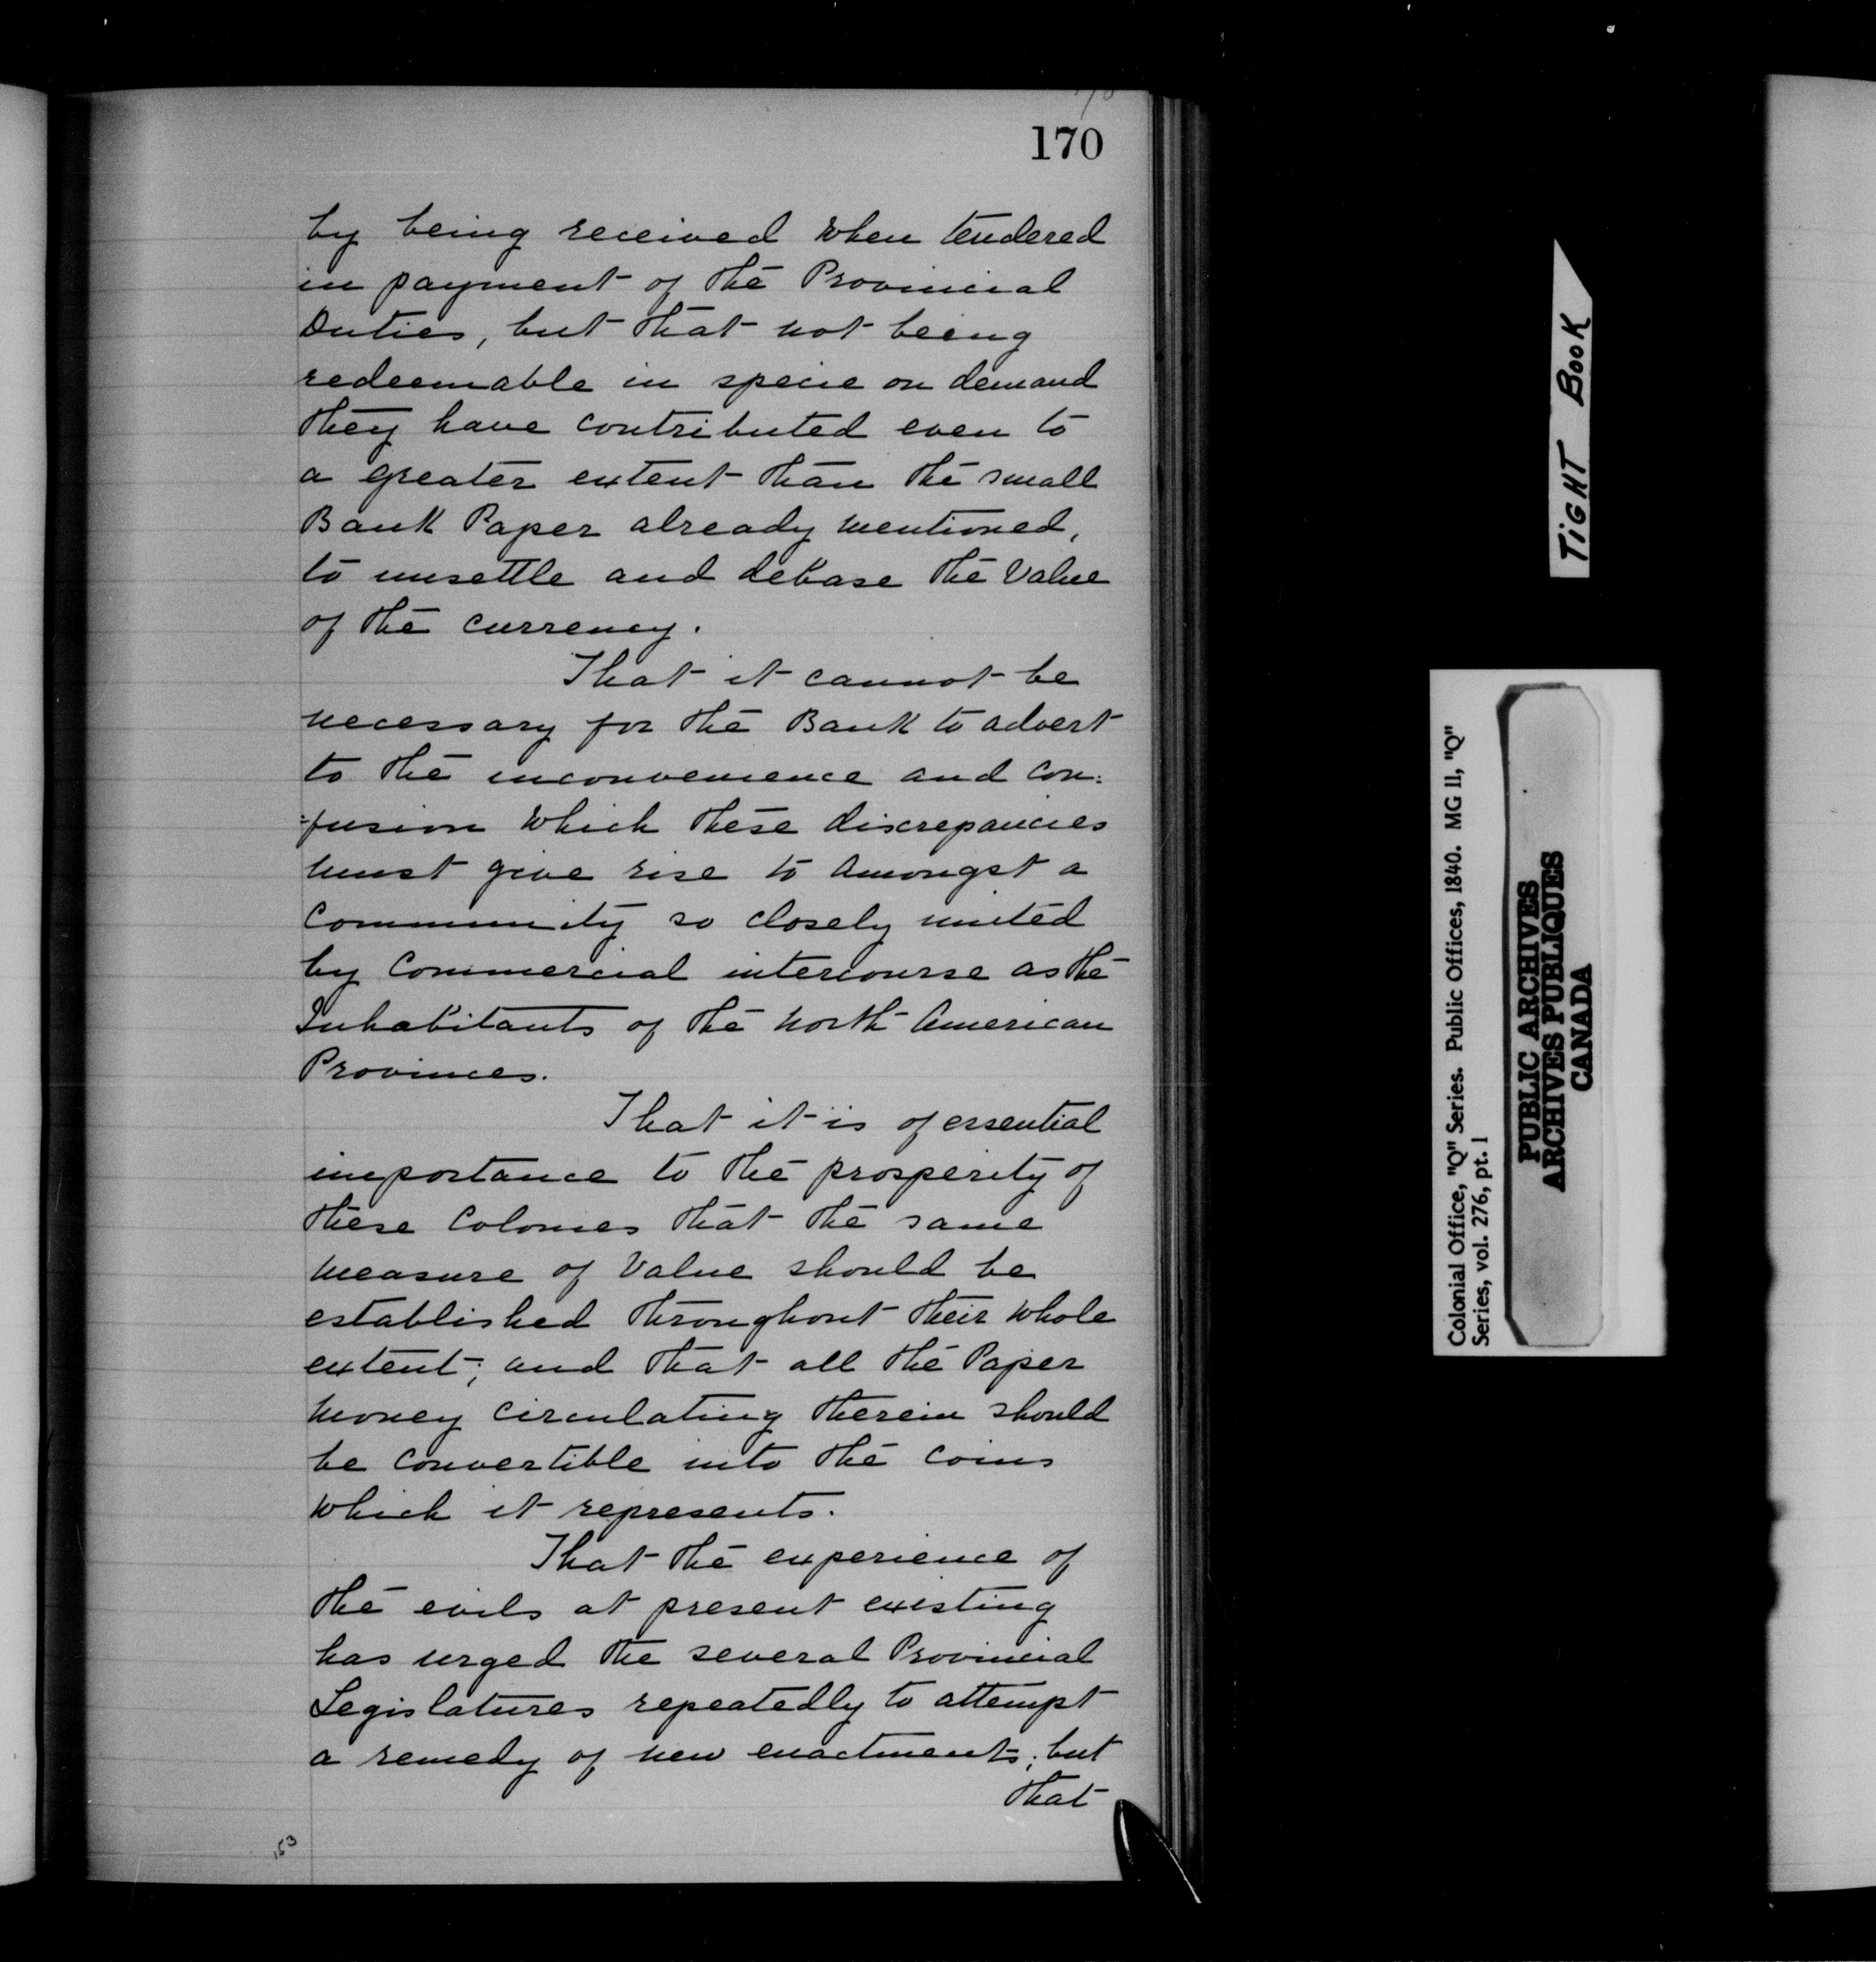 170
by being received when tendered
in payment of the Provincial
Duties, but that not being
redeemable in specie on demand
they have contributed even to
a greater extent than the small
Bank Paper already mentioned,
to unsettle and debase the Value
of the currency.
That it cannot be
necessary for the Bank to advert
to the inconvenience and con=
=fusion which these discrepancies
must give rise to amongst a
Community so closely united
by Commercial intercourse as the
Inhabitants of the North American
Provinces.
That it is of essential
importance to the prosperity of
these Colonies that the same
measure of Value should be
established throughout their whole
extent; and that all the Paper
money circulating therein should
be convertible into the coins
which it represents.
That the experience of
the evils at present existing
has urged the several Provincial
Legislatures repeatedly to attempt
a remedy of new enactments; but
that
153
TIGHT BOOK
Colonial Office, "Q" Series. Public Offices, 1840. MG 11, "Q"
Series, vol. 276, pt. 1
PUBLIC ARCHIVES
ARCHIVES PUBLIQUES
CANADA